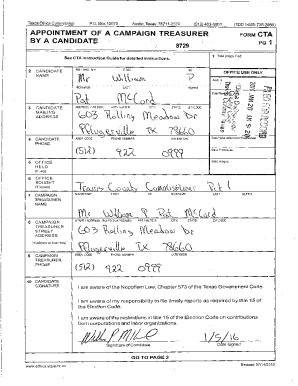 Texas Ethics Commission P.O. Box 12070 Austin, Texas 78711-2070 (512) 463-5800
APPOINTMENT OF A CAMPAIGN TREASURER BY A CANDIDATE
FORM CTA
PG 1
8729
See CTA Instruction Guide for detailed instructions.
1 Total pages filed:
2 CANDIDATE NAME
MS / MRS / MR FIRST MI
Mr William P
NICKNAME LAST SUFFIX
Pat McCord
OFFICE USE ONLY
3 CANDIDATE MAILING ADDRESS
603 Rolling Meadow Dr
Pflugerville TX 78660
4 CANDIDATE PHONE
AREA CODE PHONE NUMBER EXTENSION
(512) 922 0999
5 OFFICE HELD
6 OFFICE SOUGHT
Travis County Commissioner Pct 1
7 CAMPAIGN TREASURER NAME
Mr William P Pat McCord
8 CAMPAIGN TREASURER STREET ADDRESS
603 Rolling Meadow Dr
Pflugerville TX 78660
9 CAMPAIGN TREASURER PHONE
AREA CODE PHONE NUMBER EXTENSION
(512) 922 0999
10 CANDIDATE SIGNATURE
I am aware of the Nepotism Law, Chapter 573 of the Texas Government Code.
I am aware of my responsibility to file timely reports as required by title 15 of
the Election Code.
I am aware of the restrictions in title 15 of the Election Code on contributions
from corporations and labor organizations.
1/5/16
Signature of Candidate Date Signed
GO TO PAGE 2
www.ethics.state.tx.us